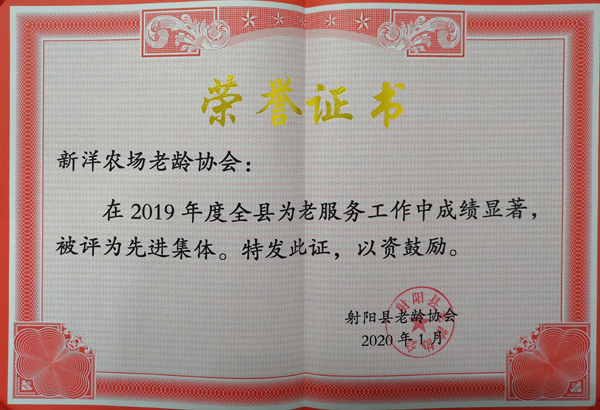 荣誉证书
新洋农场老龄协会：
在2019年度全县为老服务工作中成绩显著，
被评为先进集体。特发此证，以资鼓励。
射阳县老龄协会
2020年1月
射阳县老龄协会